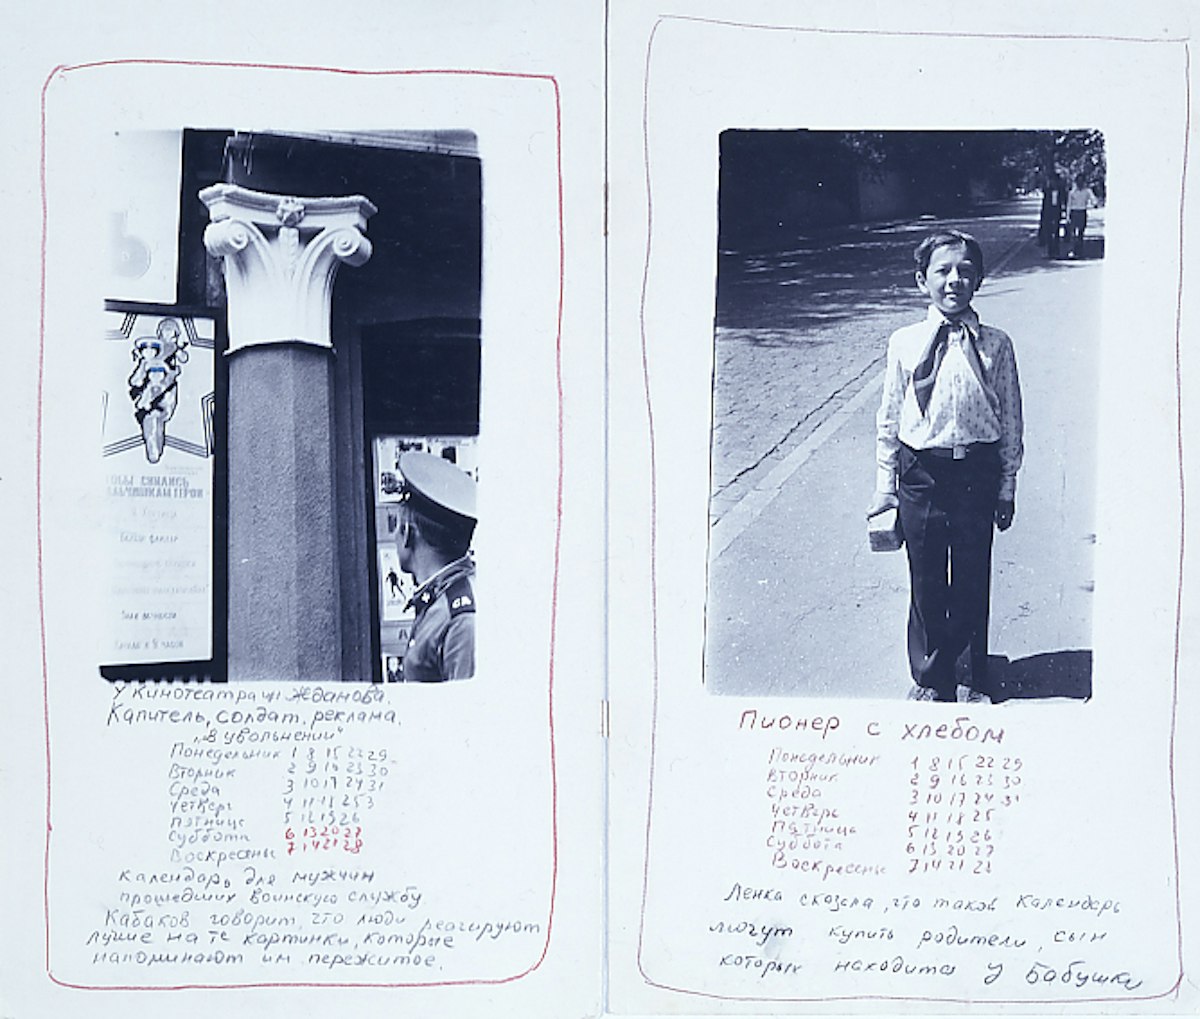 СЯ
У кинотеатра им Жданова.
Капитель, солдат, реклама.
"В увольнении"
Понедельник 1 8 15 22 29
Вторник 2 9 16 23 30
Среда 3 10 17 24 31
Четверг 4 11 18 25
Пятница 5 12 19 26
Суббота 6 13 20 27
Воскресенье 7 14 21 28
Календарь для мужчин
прошедших воинскую службу
Кабаков говорит, что люди реагируют
лучше на те картинки, которые
напоминают им пережитое.
Пионер с хлебом
Понедельник 1 8 15 22 29
Вторник 2 9 16 23 30
Среда 3 10 17 24 31
Четверг 4 11 18 25
Пятница 5 12 19 26
Суббота 6 13 20 27
Воскресенье 7 14 21 28
Ленка сказала, что такой календарь
могут купить родители, сын
которых находится у бабушки